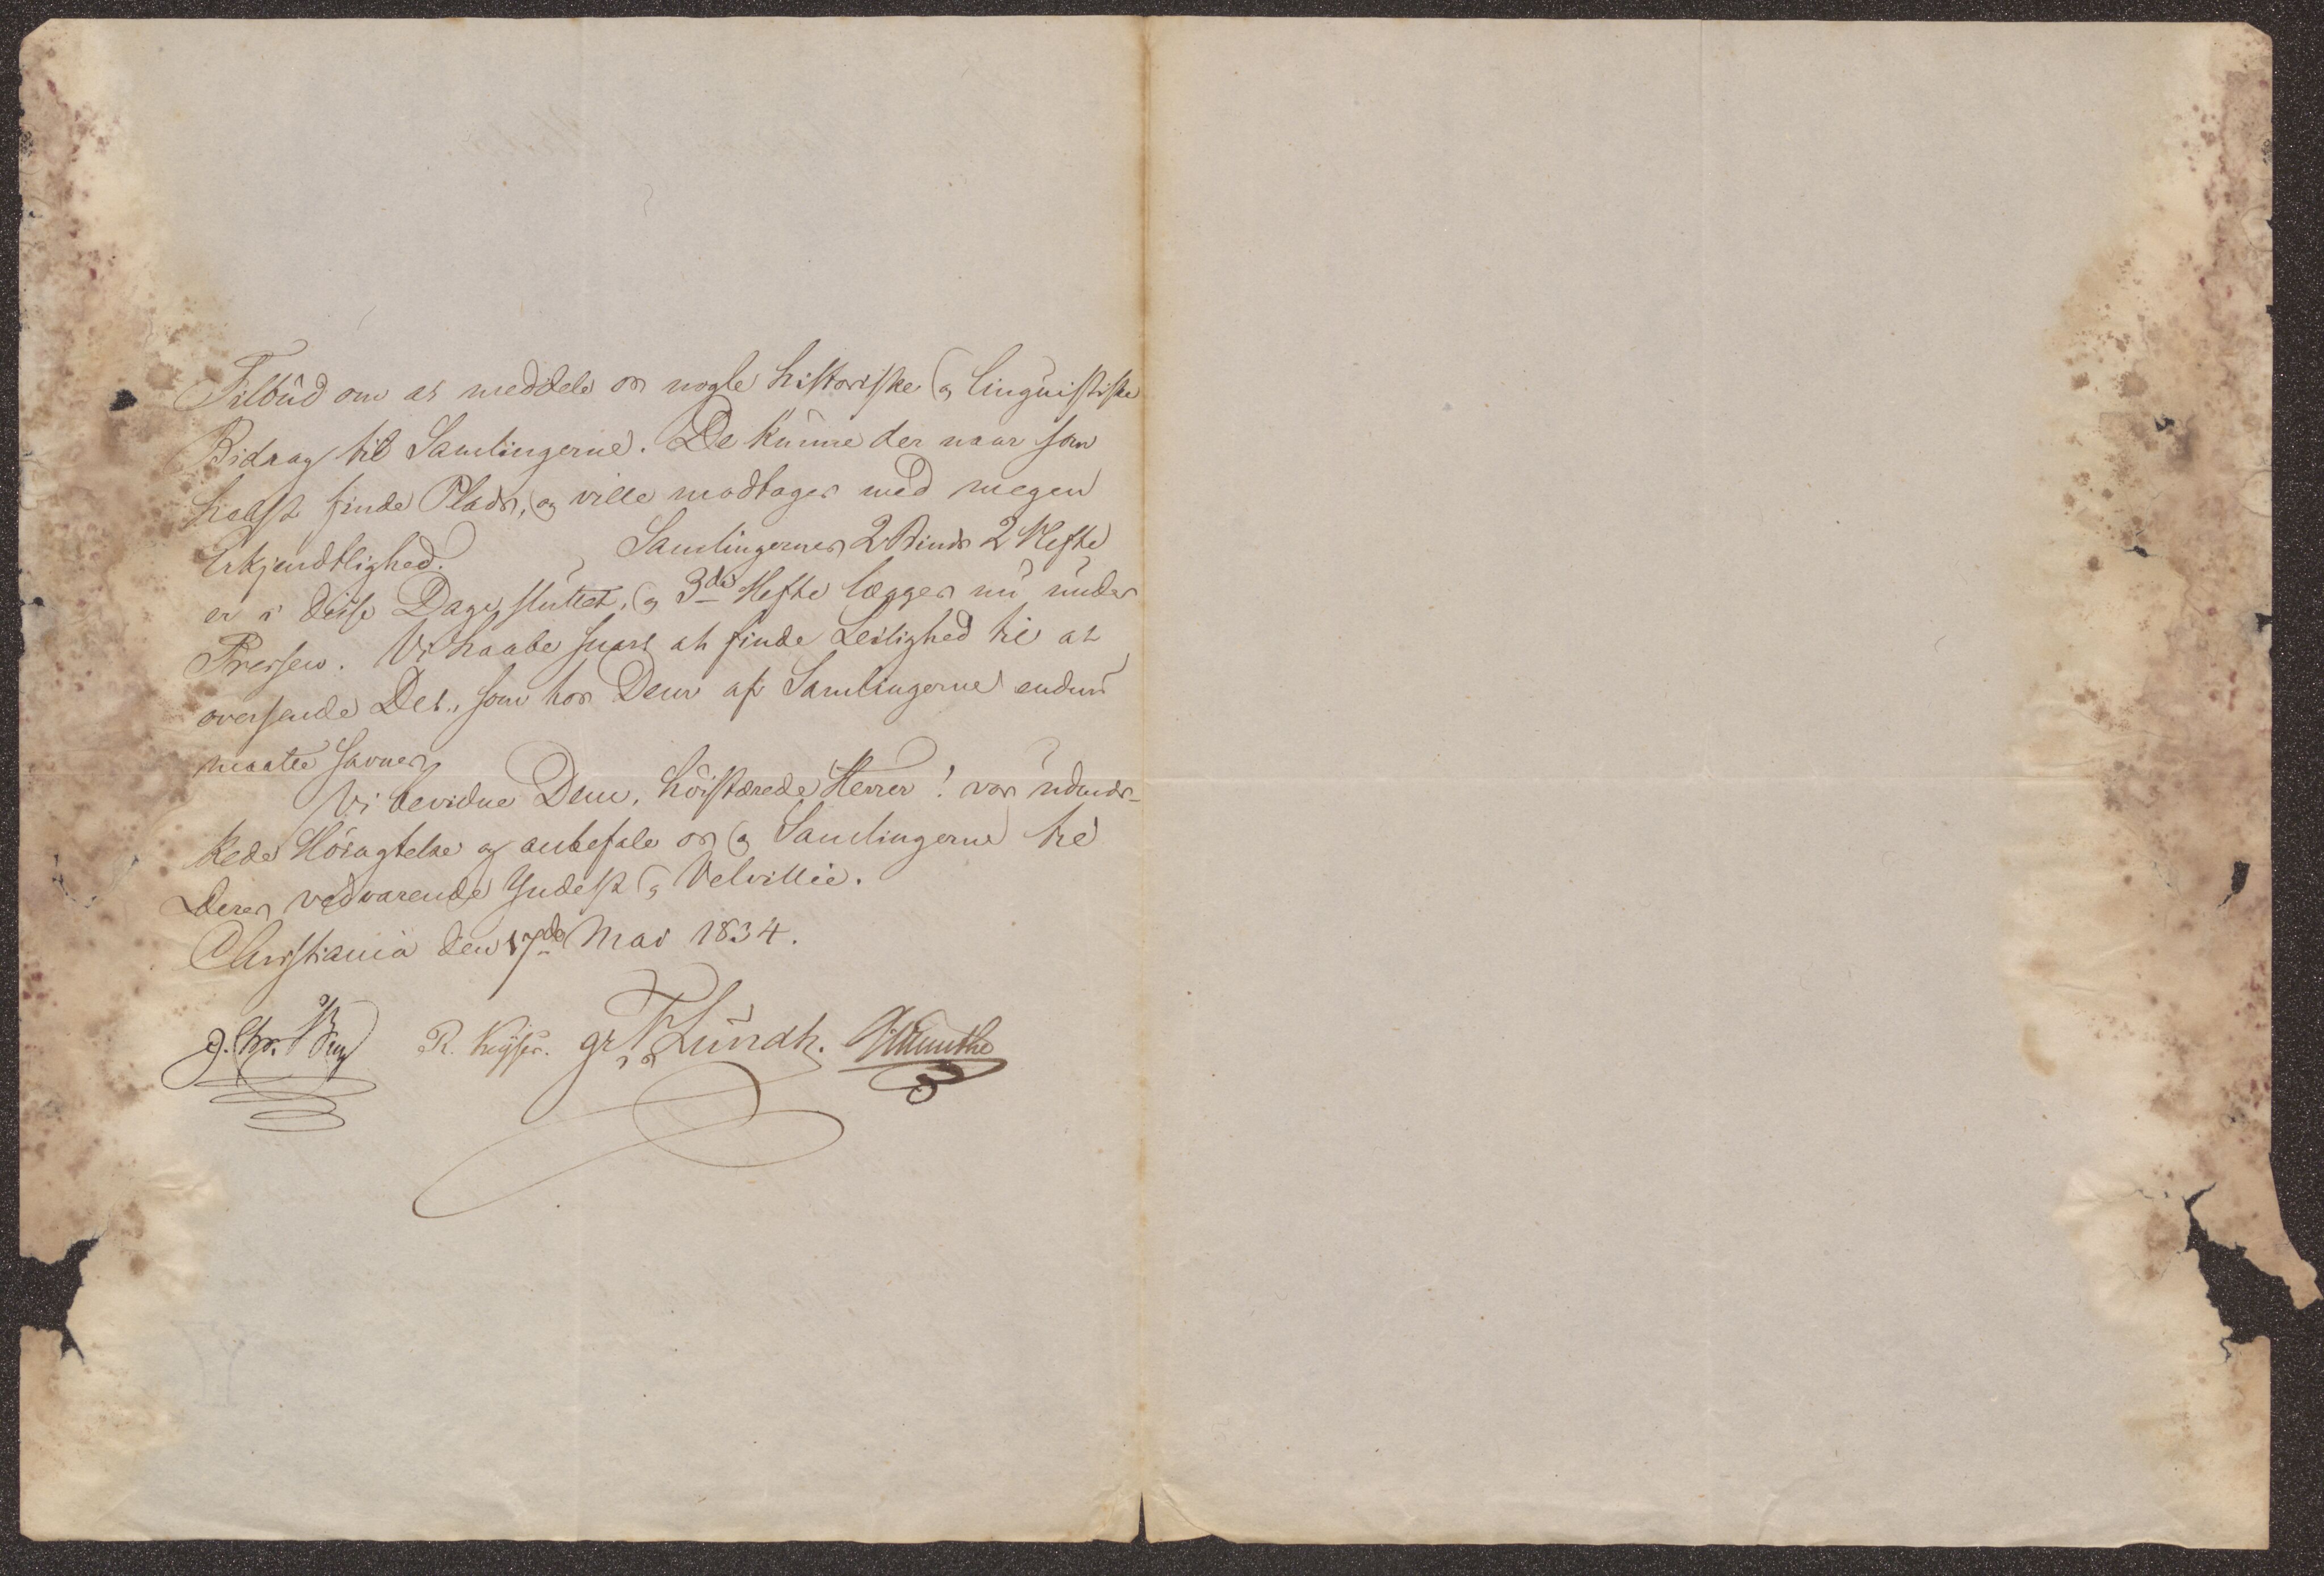 Tilbud om at meddele os nogle historiske og linguistiske
Bidrag til Samlingerne. De kunne der naar som
helst finde Plads, og ville modtages med megen
Erkjendtlighed. Samlingernes 2 Binds 2 Hefte
er i disse Dage sluttet, og 3die Hefte lægges nu under
Pressen. Vi haabe snart at finde Leilighed til at
oversende Det, som hos Dem af Samlingerne endnu
maatte savnes.
Vi bevidne Dem, høistærede Herrer! vor udmær-
kede Høiagtelse og anbefale os og Samlingerne til
Deres vedvarende Yndest og Velvillie.
Christiania den 17de Mai 1834.
J. Chr. Berg R. Keyser. Gr F Lundh. G Munthe